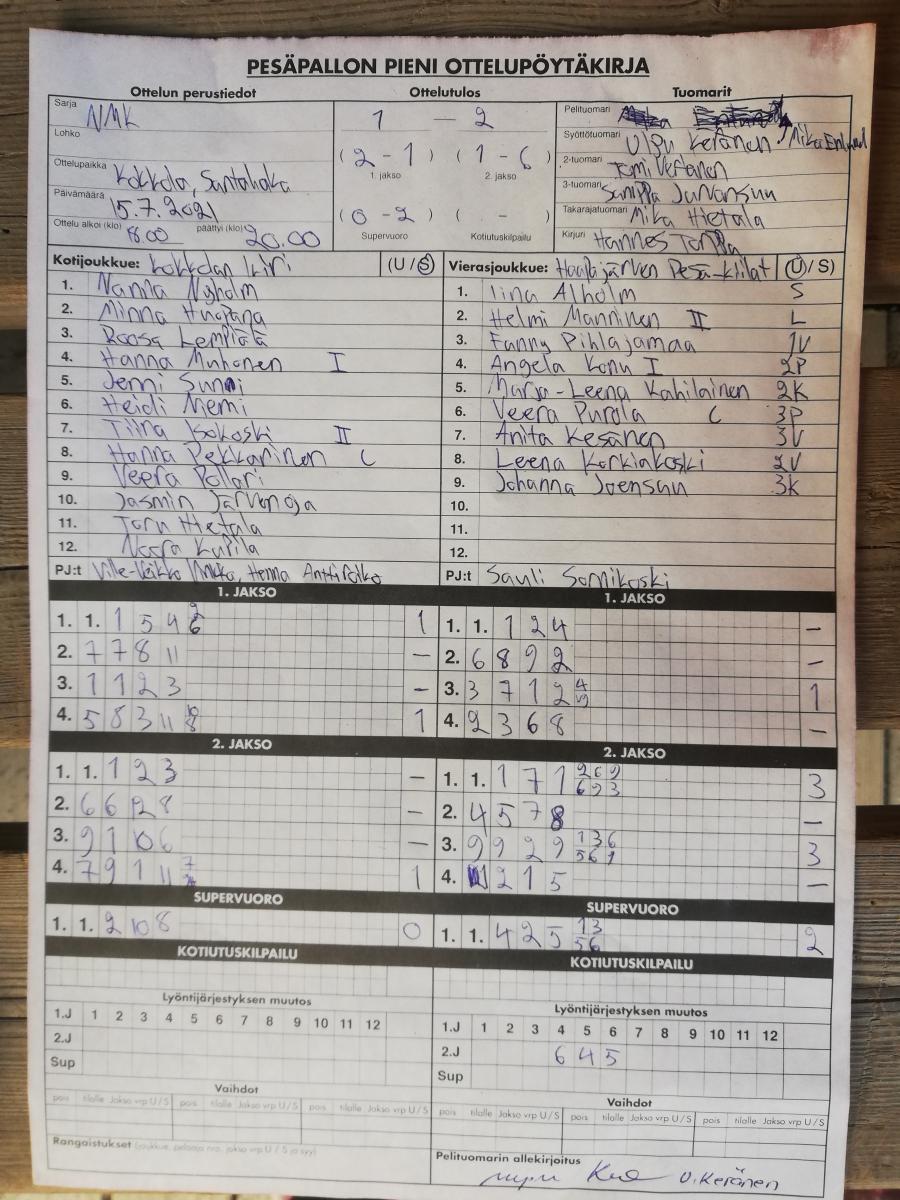 PESÄPALLON PIENI OTTELUPÖYTÄKIRJA
Ottelun perustiedot Ottelutulos Tuomarit
Sarja NMK
Lohko
Ottelupaikka Kokkola, Santahaka
Päivämäärä 15.7.2021
Ottelu alkoi (klo) 18.00 päättyi (klo) 20.00
1 — 2
(2-1) (1-6)
1. jakso 2. jakso
(0-2) ( - )
Supervuoro Kotiutuskilpailu
Pelituomari
Syöttötuomari Ulpu Keränen / Mika
2-tuomari Tomi
3-tuomari
Takarajatuomari Mika Hietala
Kirjuri Hannes
Kotijoukkue: Kokkolan Kiri (U/S)
1. Nanna Nyholm
2. Minna Huopana
3. Roosa Lempiälä
4. Hanna Muhonen I
5. Jenni Sunni
6. Heidi Niemi
7. Tiina Isokoski II
8. Hanna Pekkarinen C
9. Veera Pollari
10. Jasmin Järvenoja
11. Hietala
12. Noora Kupila
PJ:t Ville-Veikko Henna
Vierasjoukkue: Haapajärven Pesä-Kiilat (U/S)
1. Iina Alholm S
2. Helmi Manninen II L
3. Fanny Pihlajamaa 1V
4. Angela Konu I 2P
5. Marja-Leena Kahilainen 2K
6. Veera Purola C 3P
7. Anita Kesänen 3V
8. Leena Korkiakoski 2V
9. Johanna Joensuu 3K
10.
11.
12.
PJ:t Sauli Somikoski
1. JAKSO
1. 1. 1 5 4 6 1
2. 7 7 8 11 –
3. 1 1 2 3 –
4. 5 8 3 11 10 8 1
2. JAKSO
1. 1. 1 2 3 –
2. 6 6 12 8 –
3. 9 1 10 6 –
4. 7 9 1 11 7 1
SUPERVUORO
1. 1. 2 10 8 0
KOTIUTUSKILPAILU
Lyöntijärjestyksen muutos
1.J 1 2 3 4 5 6 7 8 9 10 11 12
2.J
Sup
Vaihdot
pois tilalle Jakso vrp U/S pois tilalle Jakso vrp U/S pois tilalle Jakso vrp U/S
Rangaistukset (joukkue, pelaaja nro, jakso vrp U / S ja syy)
1. JAKSO
1. 1. 1 2 4 –
2. 6 8 9 2 –
3. 3 7 1 2 4 9 1
4. 2 3 6 8 –
2. JAKSO
1. 1. 1 7 1 2 6 9 6 2 3 3
2. 4 5 7 8 –
3. 9 9 2 9 1 3 6 5 6 1 3
4. 2 1 5 –
SUPERVUORO
1. 1. 4 2 5 13 56 2
KOTIUTUSKILPAILU
Lyöntijärjestyksen muutos
1.J 1 2 3 4 5 6 7 8 9 10 11 12
2.J 6 4 5
Sup
Vaihdot
pois tilalle Jakso vrp U/S pois tilalle Jakso vrp U/S pois tilalle Jakso vrp U/S
Pelituomarin allekirjoitus
U. Keränen